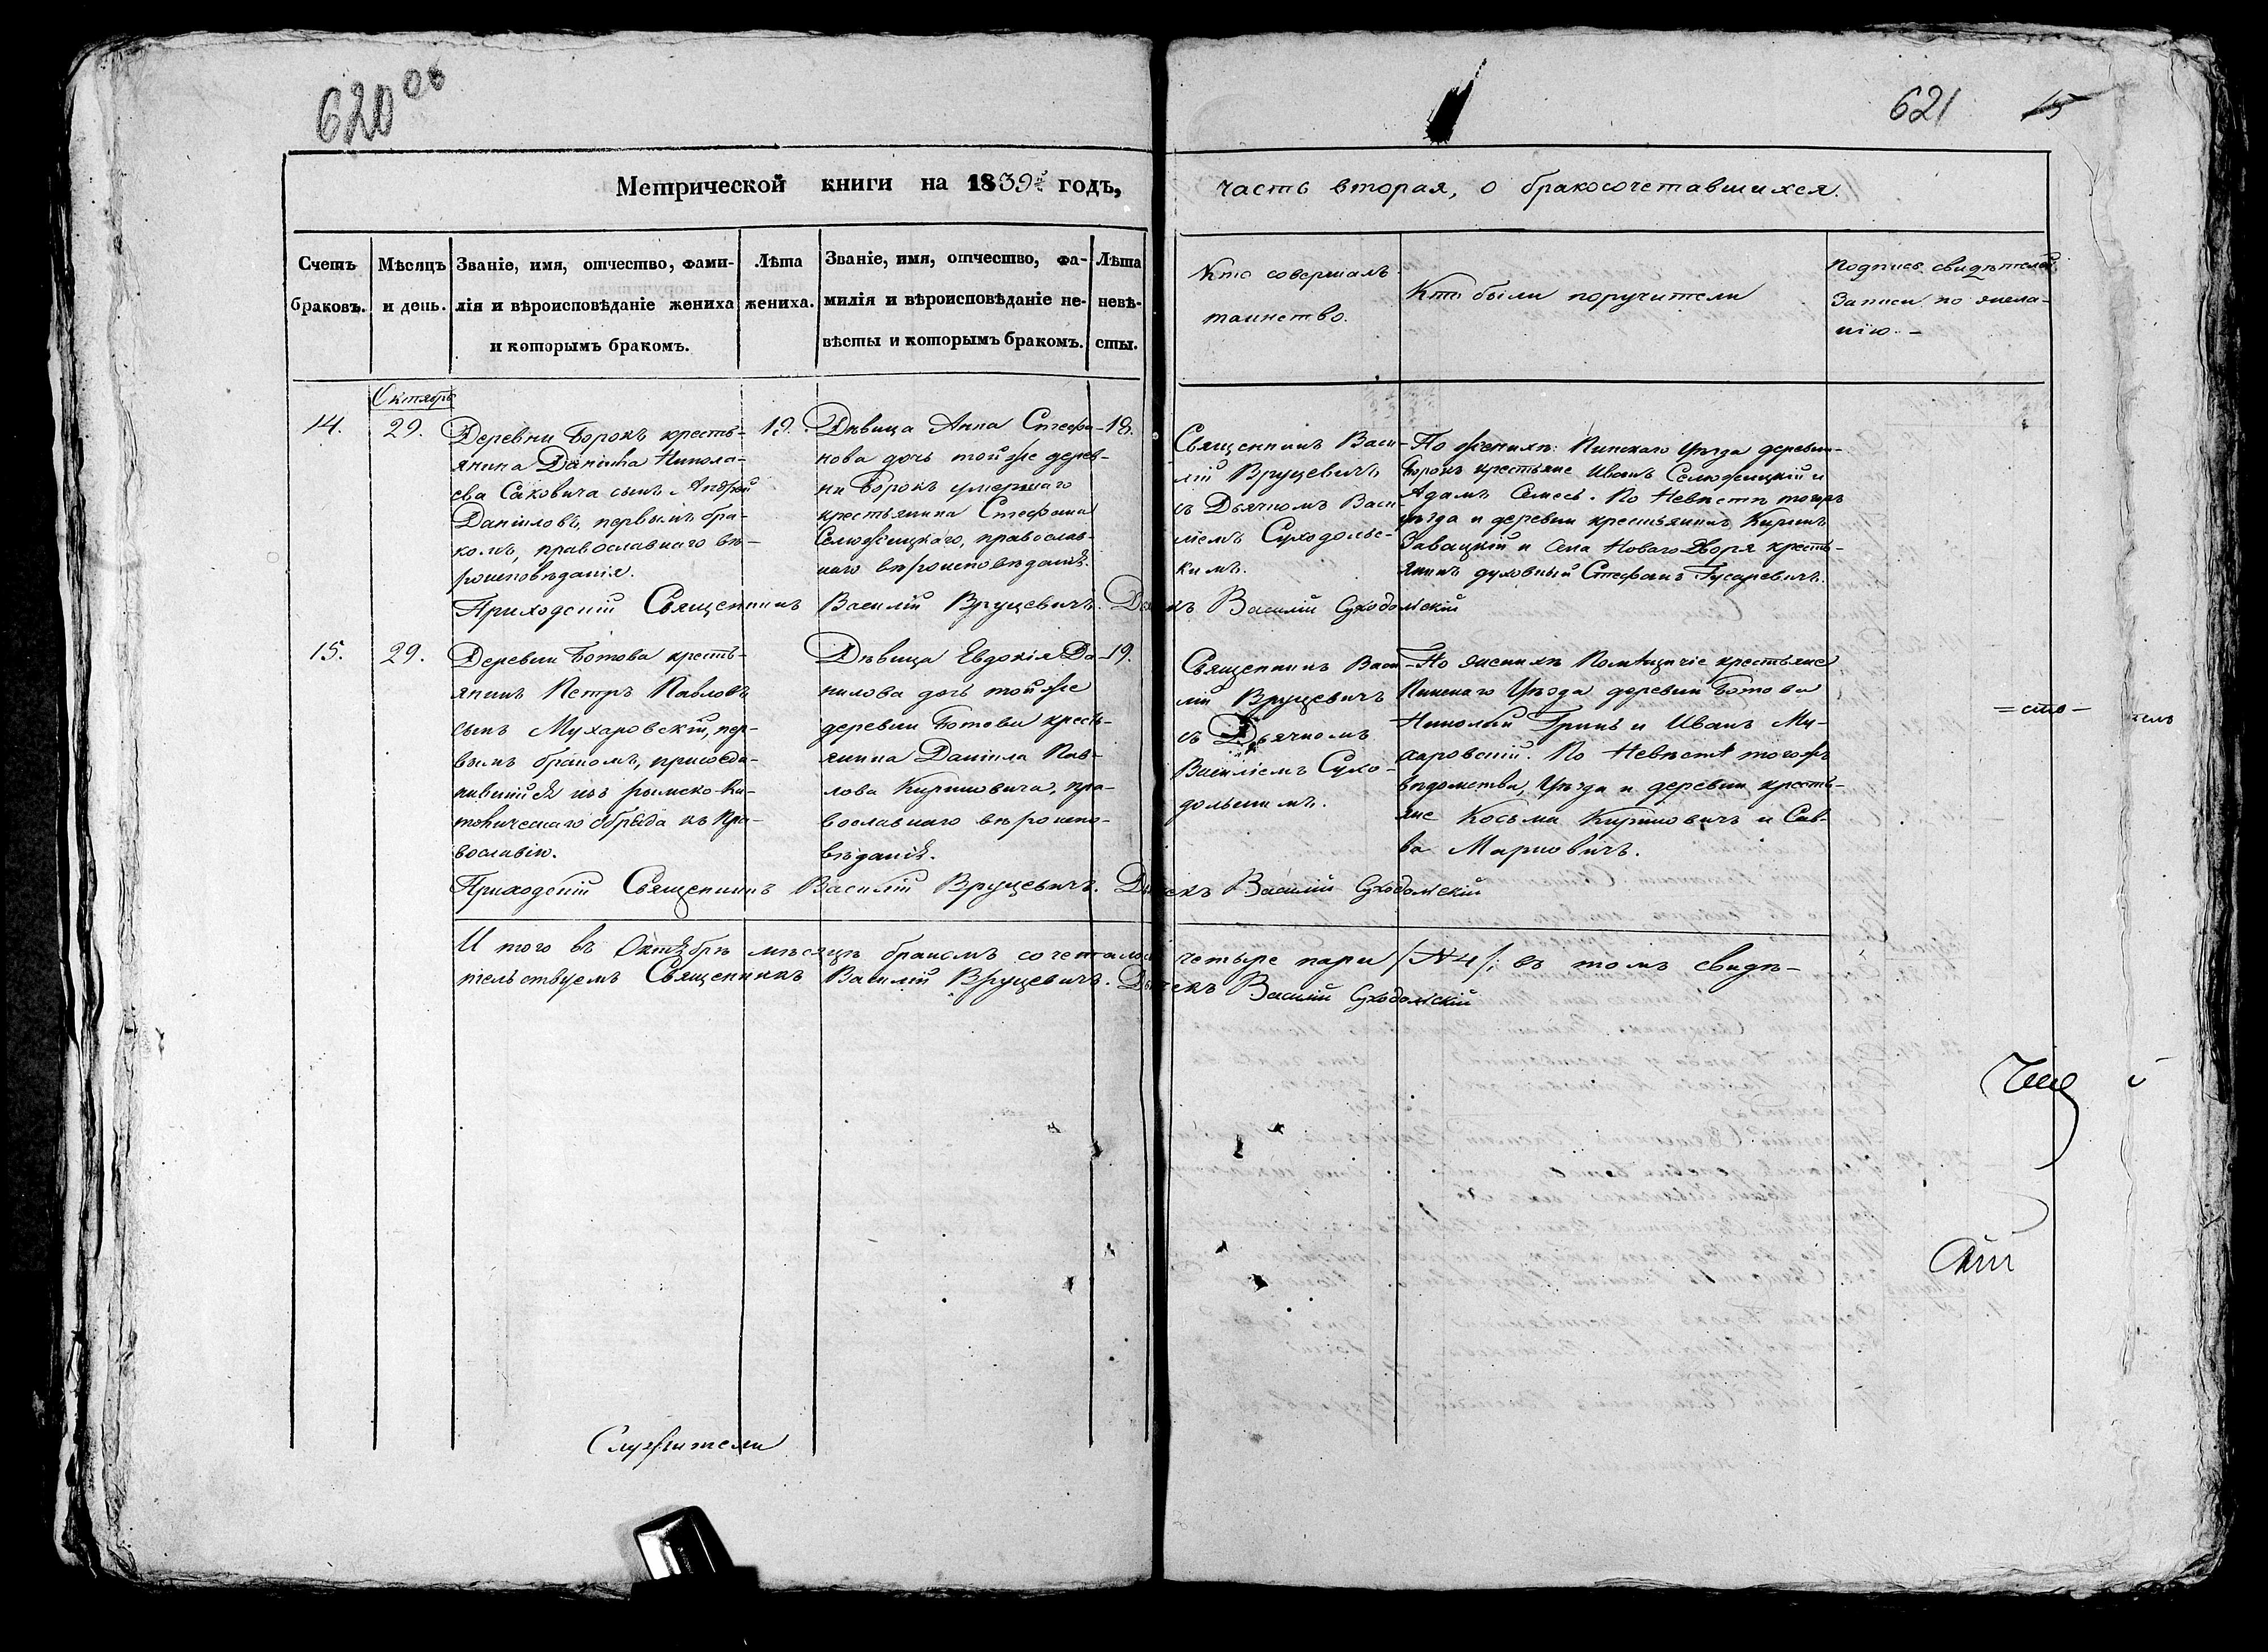 620 об
621 15
Метрической книги на 1839й годъ, часть вторая, о бракосочетавшихся.
Счетъ браковъ.
Мѣсяцъ и день.
Званіе, имя, отчество, фами-
лія и вѣроисповѣданіе жениха
и которымъ бракомъ.
Лѣта
жениха.
Званіе, имя, отчество, фа-
милія и вѣроисповѣданіе не-
вѣсты и которымъ бракомъ.
Лѣта
невѣ-
сты.
Кто совершалъ
таинство.
Кто были поручители
Подпись свидѣтелей
записи по жела-
нію. –
Октябрь
14.
29.
Деревни Борокъ кресть-
янина Даніила Никола-
ева Саковича сынъ Андрей
Даніиловъ, первымъ бра-
комъ, православнаго вѣ-
роисповѣданія.
19.
Дѣвица Анна Стефа-
нова дочь той же дерев-
ни Борокъ умершаго
крестьянина Стефана
Селюжицкаго, православ-
наго вѣроисповѣданія.
18.
Священникъ Васи-
лій Вруцевичъ
съ Дьячкомъ Васи-
ліемъ Суходольс-
кимъ.
По женихѣ: Пинскаго Уѣзда деревни
Борокъ крестьяне Иванъ Селюжицкій и
Адамъ Семесь. По Невѣстѣ тогожъ
уѣзда и деревни крестьянинъ Кирилъ
Завацкій и Села Новаго-Двора кресть-
янинъ духовный Стефанъ Гусаревичъ.
Приходскій Священникъ Василій Вруцевичъ. Дьячекъ Василій Суходольскій
15.
29.
Деревни Ботова кресть-
янинъ Петръ Павловъ
сынъ Мухаровскій, пер-
вымъ бракомъ, присоеди-
нившійся изъ римско-Ка-
толическаго обряда къ Пра-
вославію.
Дѣвица Евдокія Да-
нилова дочь той же
деревни Ботови кресть-
янина Даніила Пав-
лова Кириловича, пра-
вославнаго вѣроиспо-
вѣданія.
19.
Священникъ Васи-
лій Вруцевичъ
съ Дьячкомъ
Василіемъ Сухо-
дольскимъ.
По женихѣ Помѣщичіе крестьяне
Пинскаго Уѣзда деревни Ботови
Николай Гринь и Иванъ Му-
харовскій. По Невѣстѣ тогожъ
вѣдомства, Уѣзда и деревни кресть-
яне Косьма Кириловичъ и Сав-
ва Марковичъ.
Приходскій Священникъ Василій Вруцевичъ. Дьячекъ Василій Суходольскій
И того въ Октябрѣ мѣсяцѣ бракомъ сочеталось четыре пары /№ 4/; въ томъ свидѣ-
тельствуемъ Священникъ Василій Вруцевичъ. Дьячекъ Василій Суходольскій
Служители